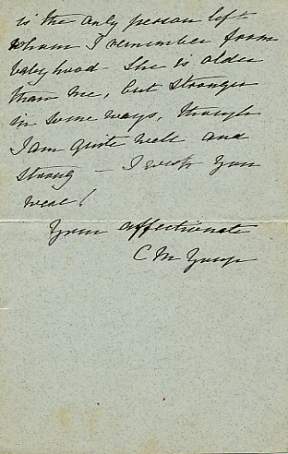 is the only person left
whom I remember from
babyhood - She is older
than me, but stronger
in some ways, though
I am quite well and
strong - I wish you
were!
Your affectionate
C M Yonge